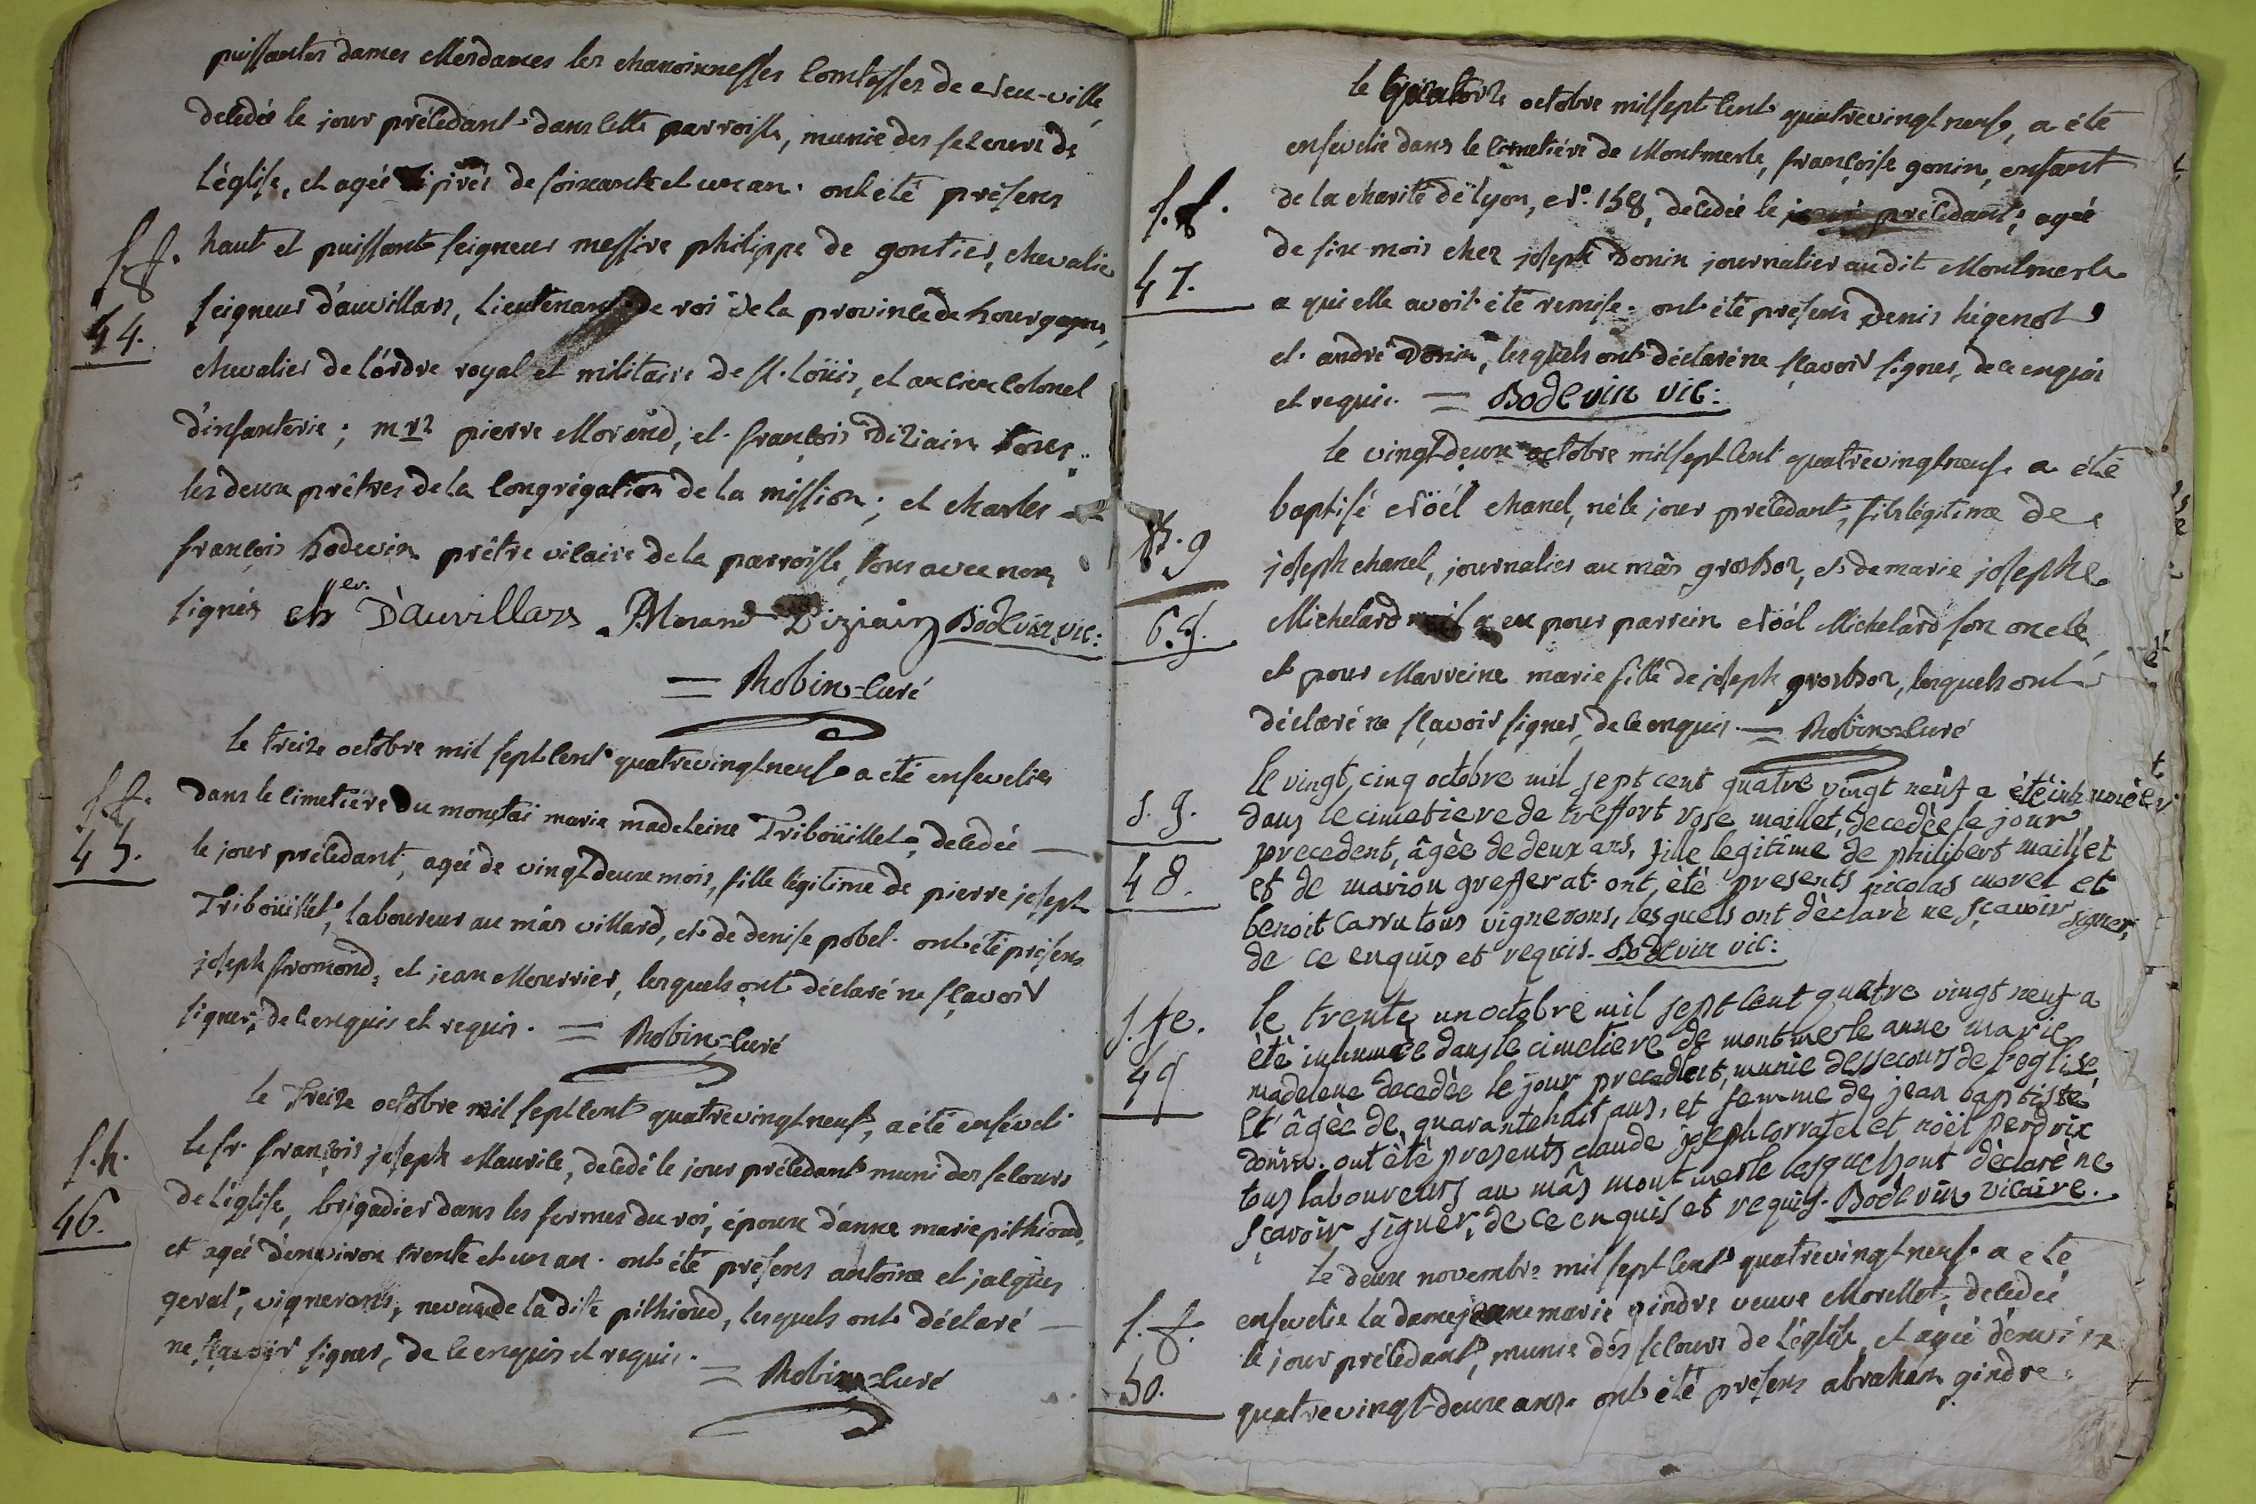 puissantes dames Mesdames les chanoinnesses Comtesses de Neu-ville,
décédée le jour précédant dans cette parroisse, munie des secours de
l'église, et agée de soixante et un an. ont été présens
haut et puissant seigneur messire philippe de gontier, chevalier
s.f.
44.
seigneur d'auvillars, lieutenant de roi de la province de bourgogne,
chevalier de l'ordre royal et militaire de st. Loüis, et ancien Colonel
d'infanterie; mrs pierre Morand, et françois Diziain tous
les deux prêtres de la Congrégation de la mission; et charles
françois bodevin prêtre vicaire de la parroisse, tous avec nous
signés cher D'auvillars P. Morand Diziain Bodevin vic:
= Robin-Curé
le treize octobre mil sept cent quatrevingt neuf a été ensevelie
s.f.
45.
dans le cimetiére du monstai marie madeleine Triboüillet, décédée
le jour précédant, agée de vingt deux mois, fille légitime de pierre joseph
Triboüillet, laboureur au mâs villard, et de denise pobel. ont été présens
joseph fromond, et jean Mourrier, lesquels ont déclaré ne sçavoir
signer, de ce enquis et requis. = Robin-Curé
le treize octobre mil sept cent quatrevingt neuf, a été enséveli
s.h.
46.
le sr. françois joseph Maurice, décédé le jour précédant muni des secours
de l'église, brigadier dans les fermes du roi, époux d'anne marie pithioud,
et agée d'environ trente et un an. ont été présens antoine et jacques
gerat, vignerons, neveux de la dite pithioud, lesquels ont déclaré
ne sçavoir signer, de ce enquis et requis. = Robin-Curé
le quatorze octobre mil sept cent quatrevingt neuf, a été
ensevelie dans le cimetiére de Montmerle, françoise gonin, enfant
s.f.
47.
de la charité de lyon, No. 158, décédée le jour précédant, agée
de six mois chez joseph Donin journalier audit Montmerle
a qui elle avoit été remise. ont été présens Denis higenot
et andré Donin, lesquels ont déclaré ne sçavoir signer, de ce enquis
et requis. = Bodevin vic:
le vingt-deux octobre mil sept cent quatrevingt neuf a été
B.g
69.
baptisé Nöél chanel, né le jour précédant, fils légitime de
joseph chanel, journalier au mâs grosboz, et de marie josephe
Michelard il a eu pour parrein Nöél Michelard son oncle,
et pour Marreine marie fille de joseph grosboz, lesquels ont
déclaré ne sçavoir signer, de ce enquis. = Robin-Curé
s.g.
48.
le vingt cinq octobre mil sept cent quatre vingt neuf a été inhumèe
dans le cimetiere de treffort rose maillet, decedèe le jour
precedent, âgèe de deux ans, fille legitime de philibert maillet
et de marion grefferat. ont étè presents nicolas morel et
benoit Carru tous vignerons, lesquels ont dèclarè ne sçavoir signer,
de ce enquis et requis. Bodevin vic:
s.fe.
49
le trente un octobre mil sept cent quatre vingt neuf a
étè inhumèe dans le cimetiere de montmerle anne marie
madelene decedèe le jour precedent, munie des secours de l'eglise,
et âgèe de quarante huit ans, et femme de jean baptiste
donin. ont étè presents claude joseph Corratel et nöel perdrix
tous laboureurs au mâs montmerle lesquels ont dèclarè ne
sçavoir signer, de ce enquis et requis. Bodevin vicaire.
le deux novembre mil sept cent quatrevingt neuf a eté
s.f.
50.
ensevelie la dame jeanne marie gindre veuve Morellet, décédée
le jour précédant, munie des secours de l'église, et agée d'environ
quatrevingt-deux ans. ont été présens abraham gindre